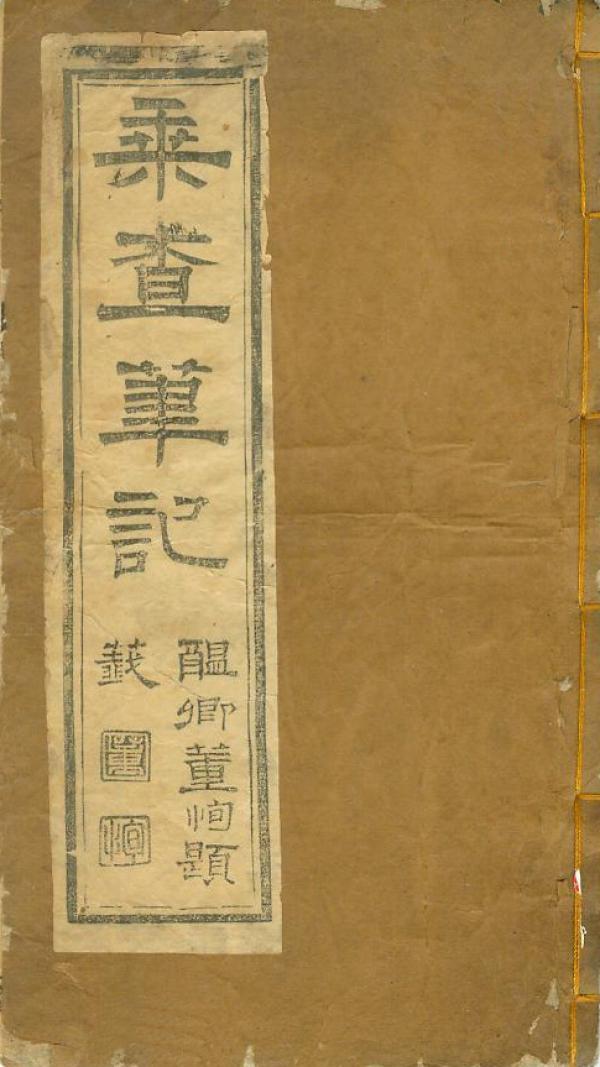 乘查筆記
醞卿董恂題
籤
董
恂